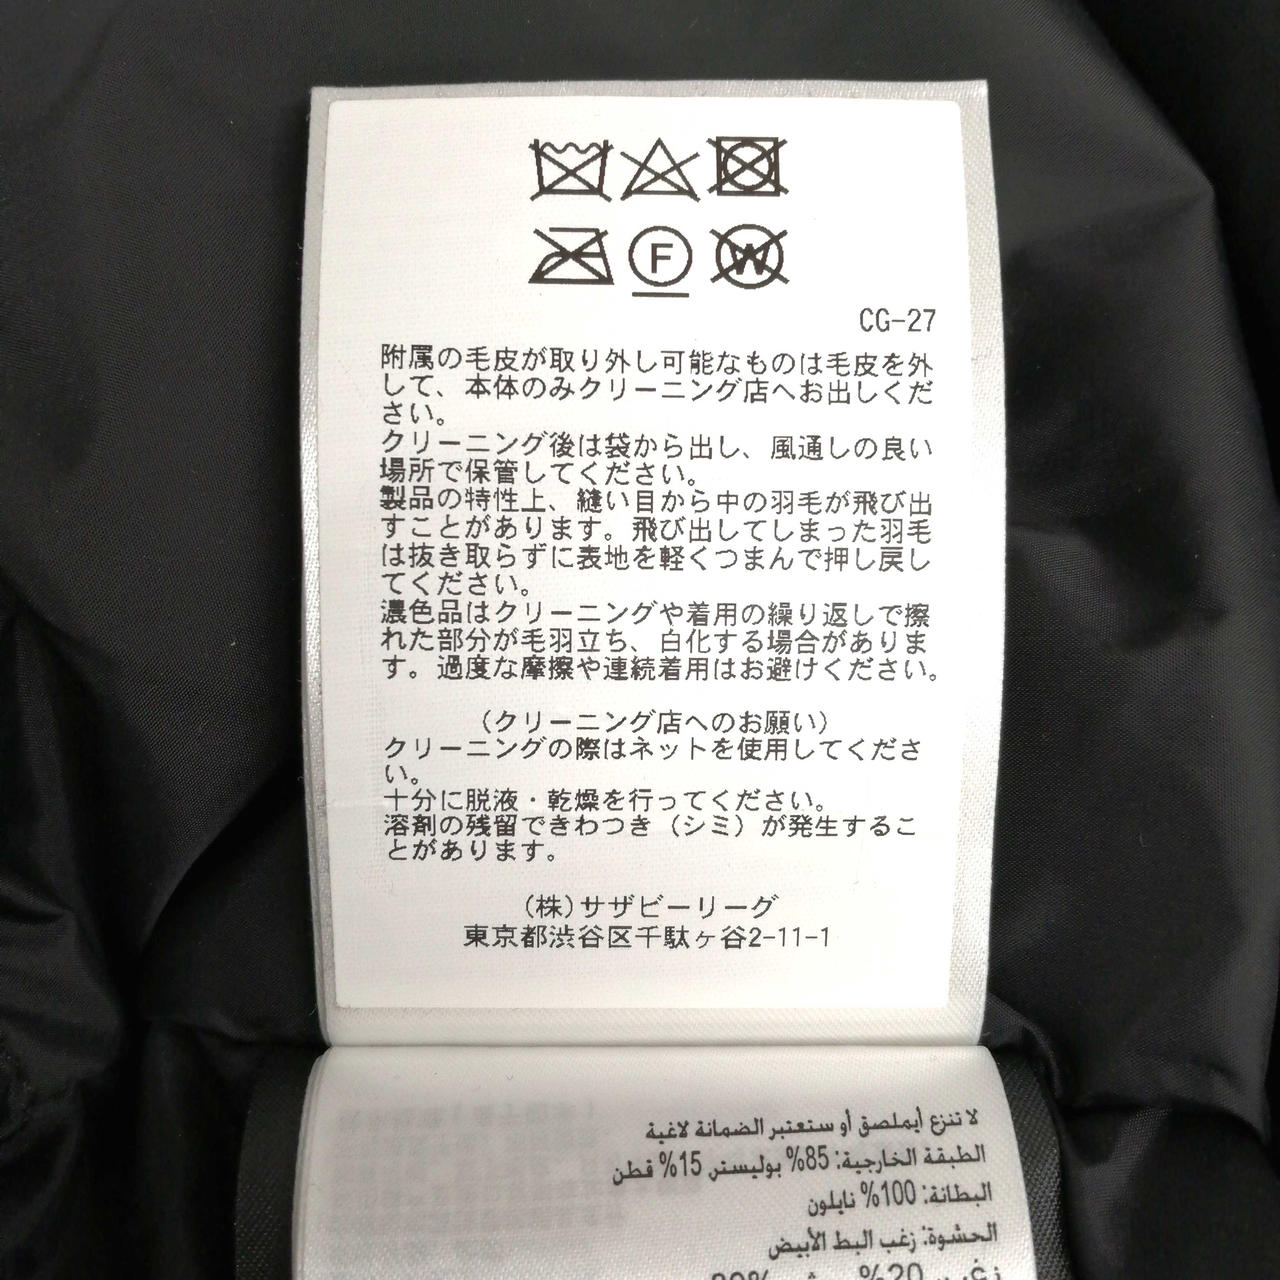 F
W
CG-27
附属の毛皮が取り外し可能なものは毛皮を外
して、本体のみクリーニング店へお出しくだ
さい。
クリーニング後は袋から出し、風通しの良い
場所で保管してください。
製品の特性上、縫い目から中の羽毛が飛び出
すことがあります。飛び出してしまった羽毛
は抜き取らずに表地を軽くつまんで押し戻し
てください。
濃色品はクリーニングや着用の繰り返しで擦
れた部分が毛羽立ち、白化する場合がありま
す。過度な摩擦や連続着用はお避けください。
（クリーニング店へのお願い）
クリーニングの際はネットを使用してくださ
い。
十分に脱液・乾燥を行ってください。
溶剤の残留できわつき（シミ）が発生するこ
とがあります。
(株)サザビーリーグ
東京都渋谷区千駄ヶ谷2-11-1
لا تنزع أيملصق أو ستعتبر الضمانة لاغية
الطبقة الخارجية: 85% بوليستر 15% قطن
البطانة: 100% نايلون
الحشوة: زغب البط الأبيض